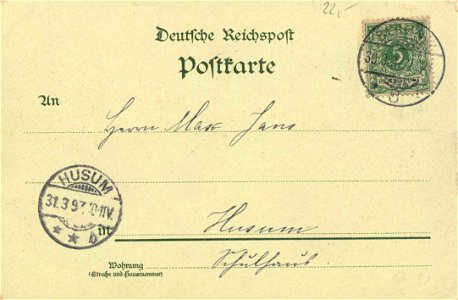 22,-
Deutsche Reichspost
Postkarte
5
An
Herrn Max Jans
HUSUM
31.3.97.10-11V.
* * b
in
Husum
Schulhaus
Wohnung
(Straße und Hausnummer)